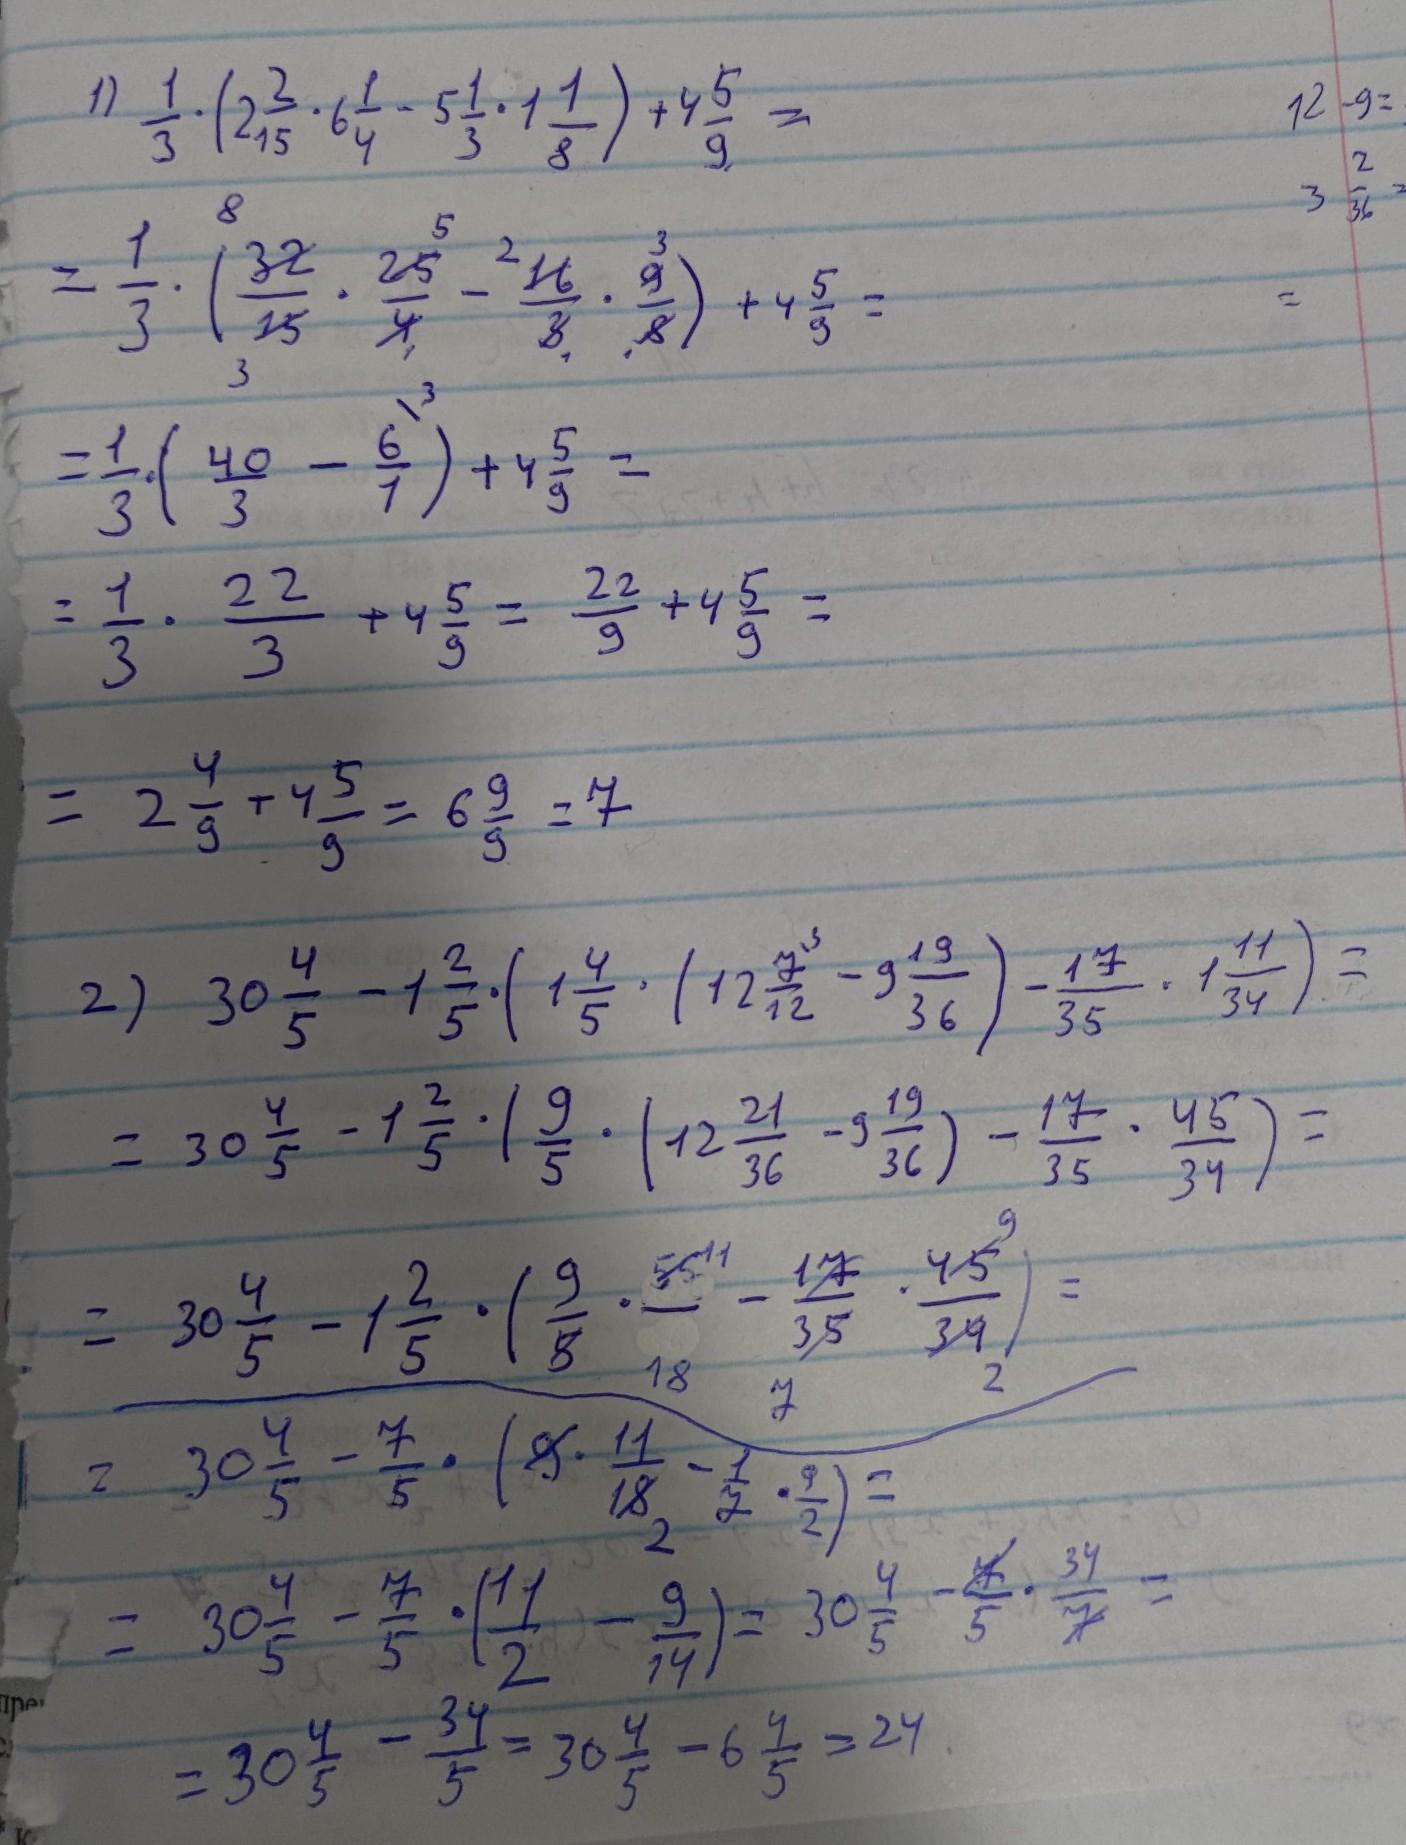 1) 1/3 · (2 2/15 · 6 1/4 - 5 1/3 · 1 1/8) + 4 5/9 =
12 - 9 =
3 2/36 =
= 1/3 · (32/15 · 25/4 - 16/3 · 9/8) + 4 5/9 =
8 5 2 3
3
=
= 1/3 · (40/3 - 6/1 \3) + 4 5/9 =
= 1/3 · 22/3 + 4 5/9 = 22/9 + 4 5/9 =
= 2 4/9 + 4 5/9 = 6 9/9 = 7
2) 30 4/5 - 1 2/5 · (1 4/5 · (12 7/12 \3 - 9 19/36) - 17/35 · 1 11/34) =
= 30 4/5 - 1 2/5 · (9/5 · (12 21/36 - 9 19/36) - 17/35 · 45/34) =
= 30 4/5 - 1 2/5 · (9/5 · 55/18 - 17/35 · 45/34) =
11 9
7 2
= 30 4/5 - 7/5 · (9 · 11/18 - 1/7 · 9/2) =
2
= 30 4/5 - 7/5 · (11/2 - 9/14) = 30 4/5 - 7/5 · 34/7 =
= 30 4/5 - 34/5 = 30 4/5 - 6 4/5 = 24